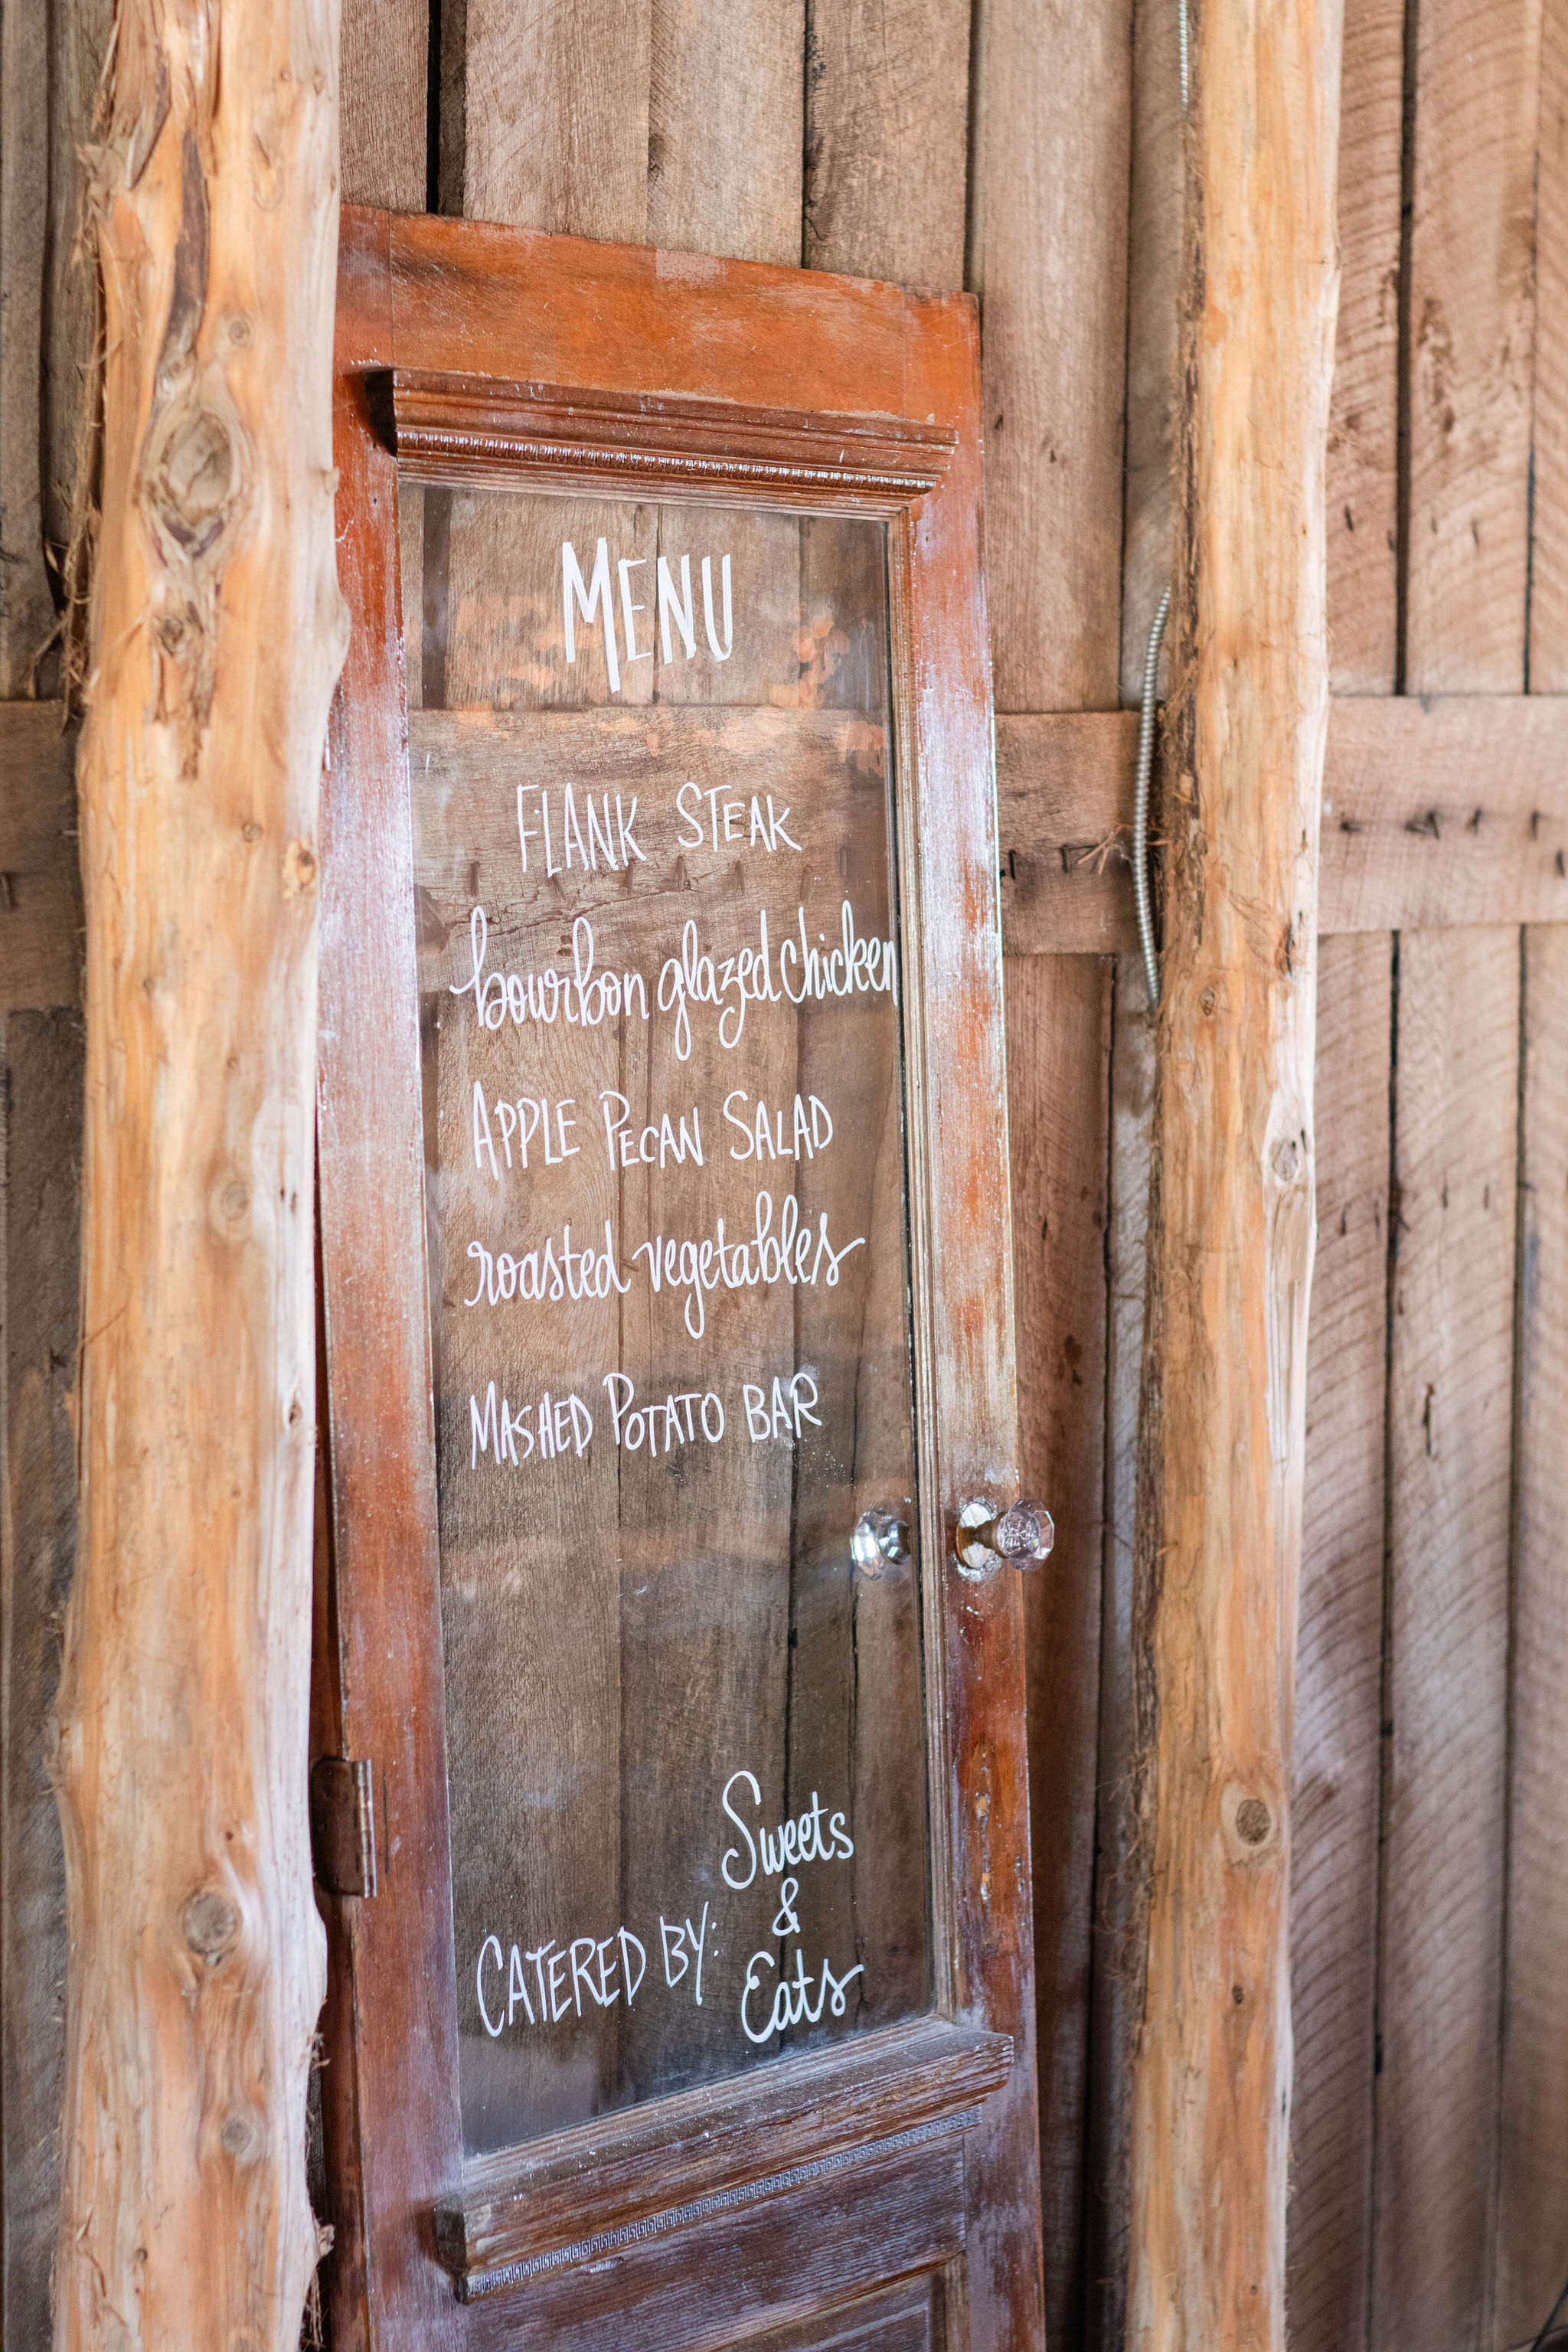 MENU
FLANK STEAK
bourbon glazed chicken
APPLE PECAN SALAD
roasted vegetables
MASHED POTATO BAR
CATERED BY:
Sweets
&
Eats